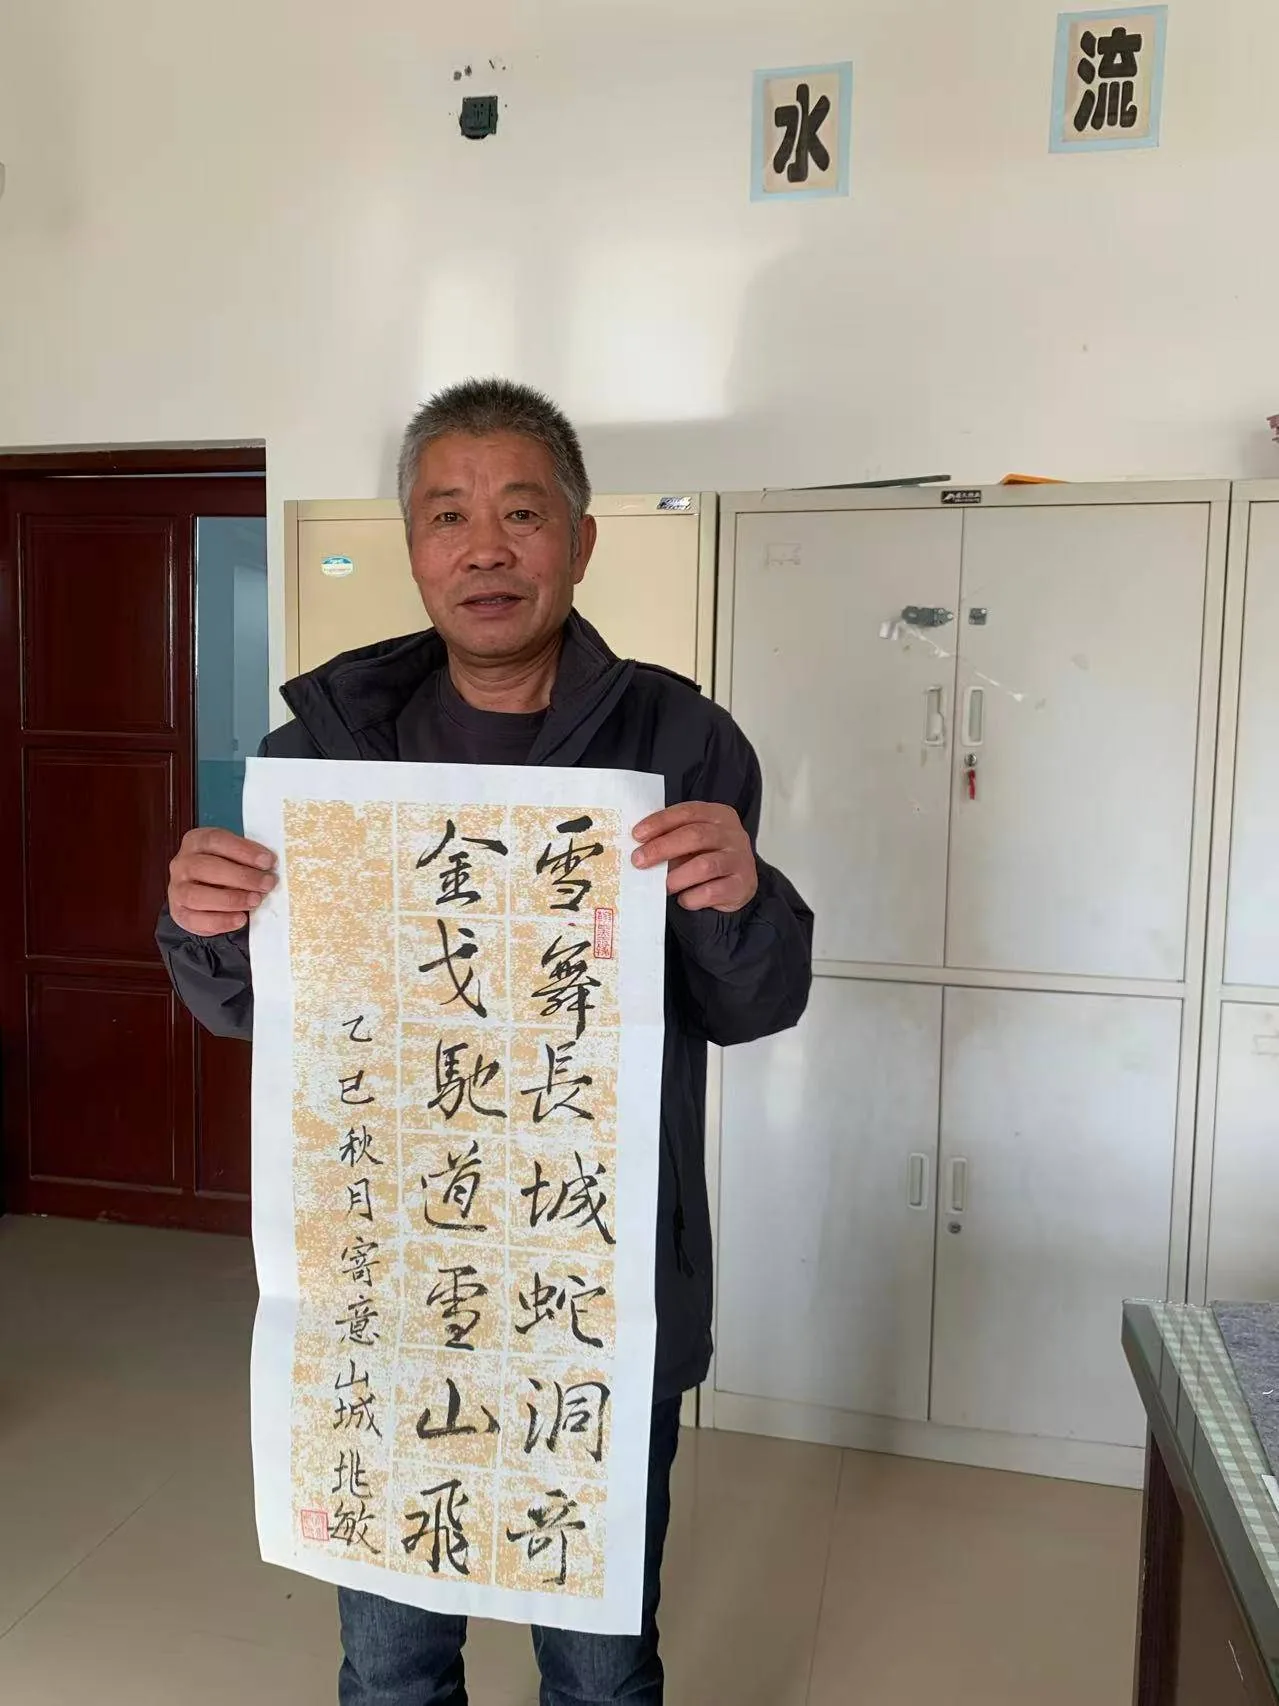 流水
雪舞長城蛇洞奇
金戈馳道雪山飛
乙巳秋月寄意山城兆敏